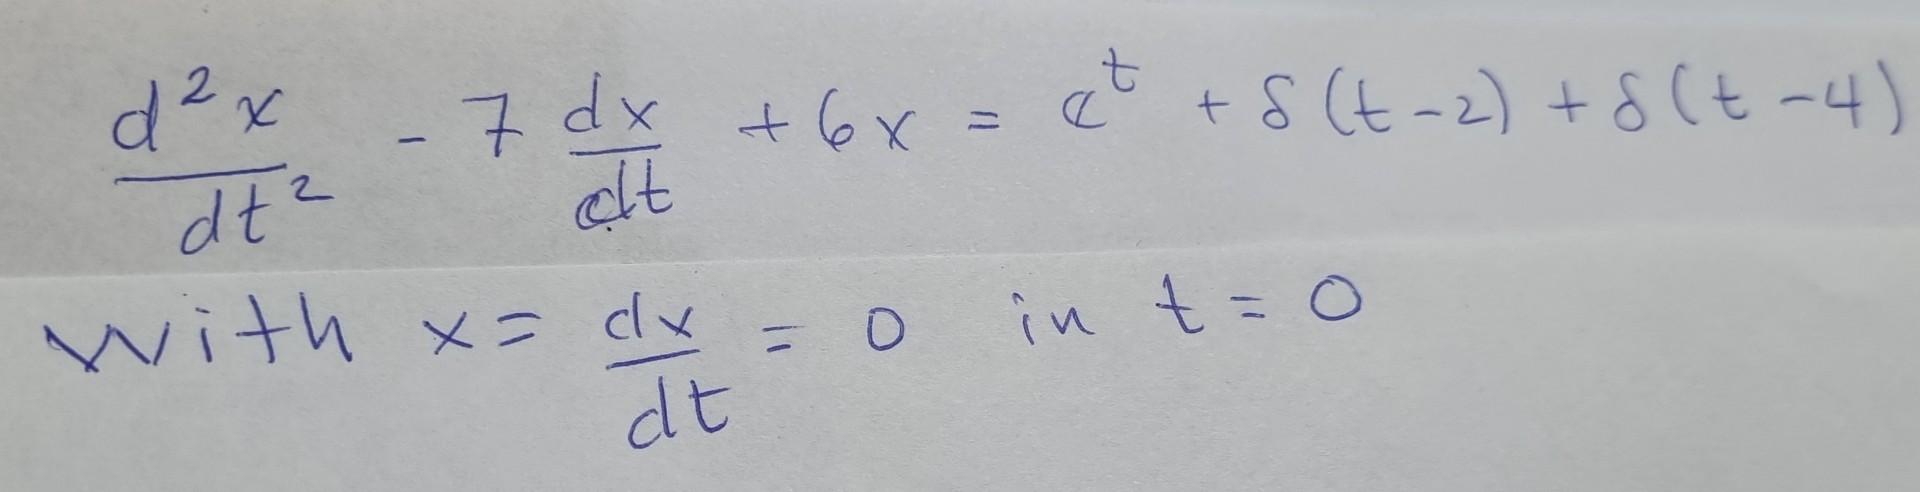 d²x/dt² - 7 dx/dt + 6x = e^t + δ(t-2) + δ(t-4)
with x = dx/dt = 0 in t = 0